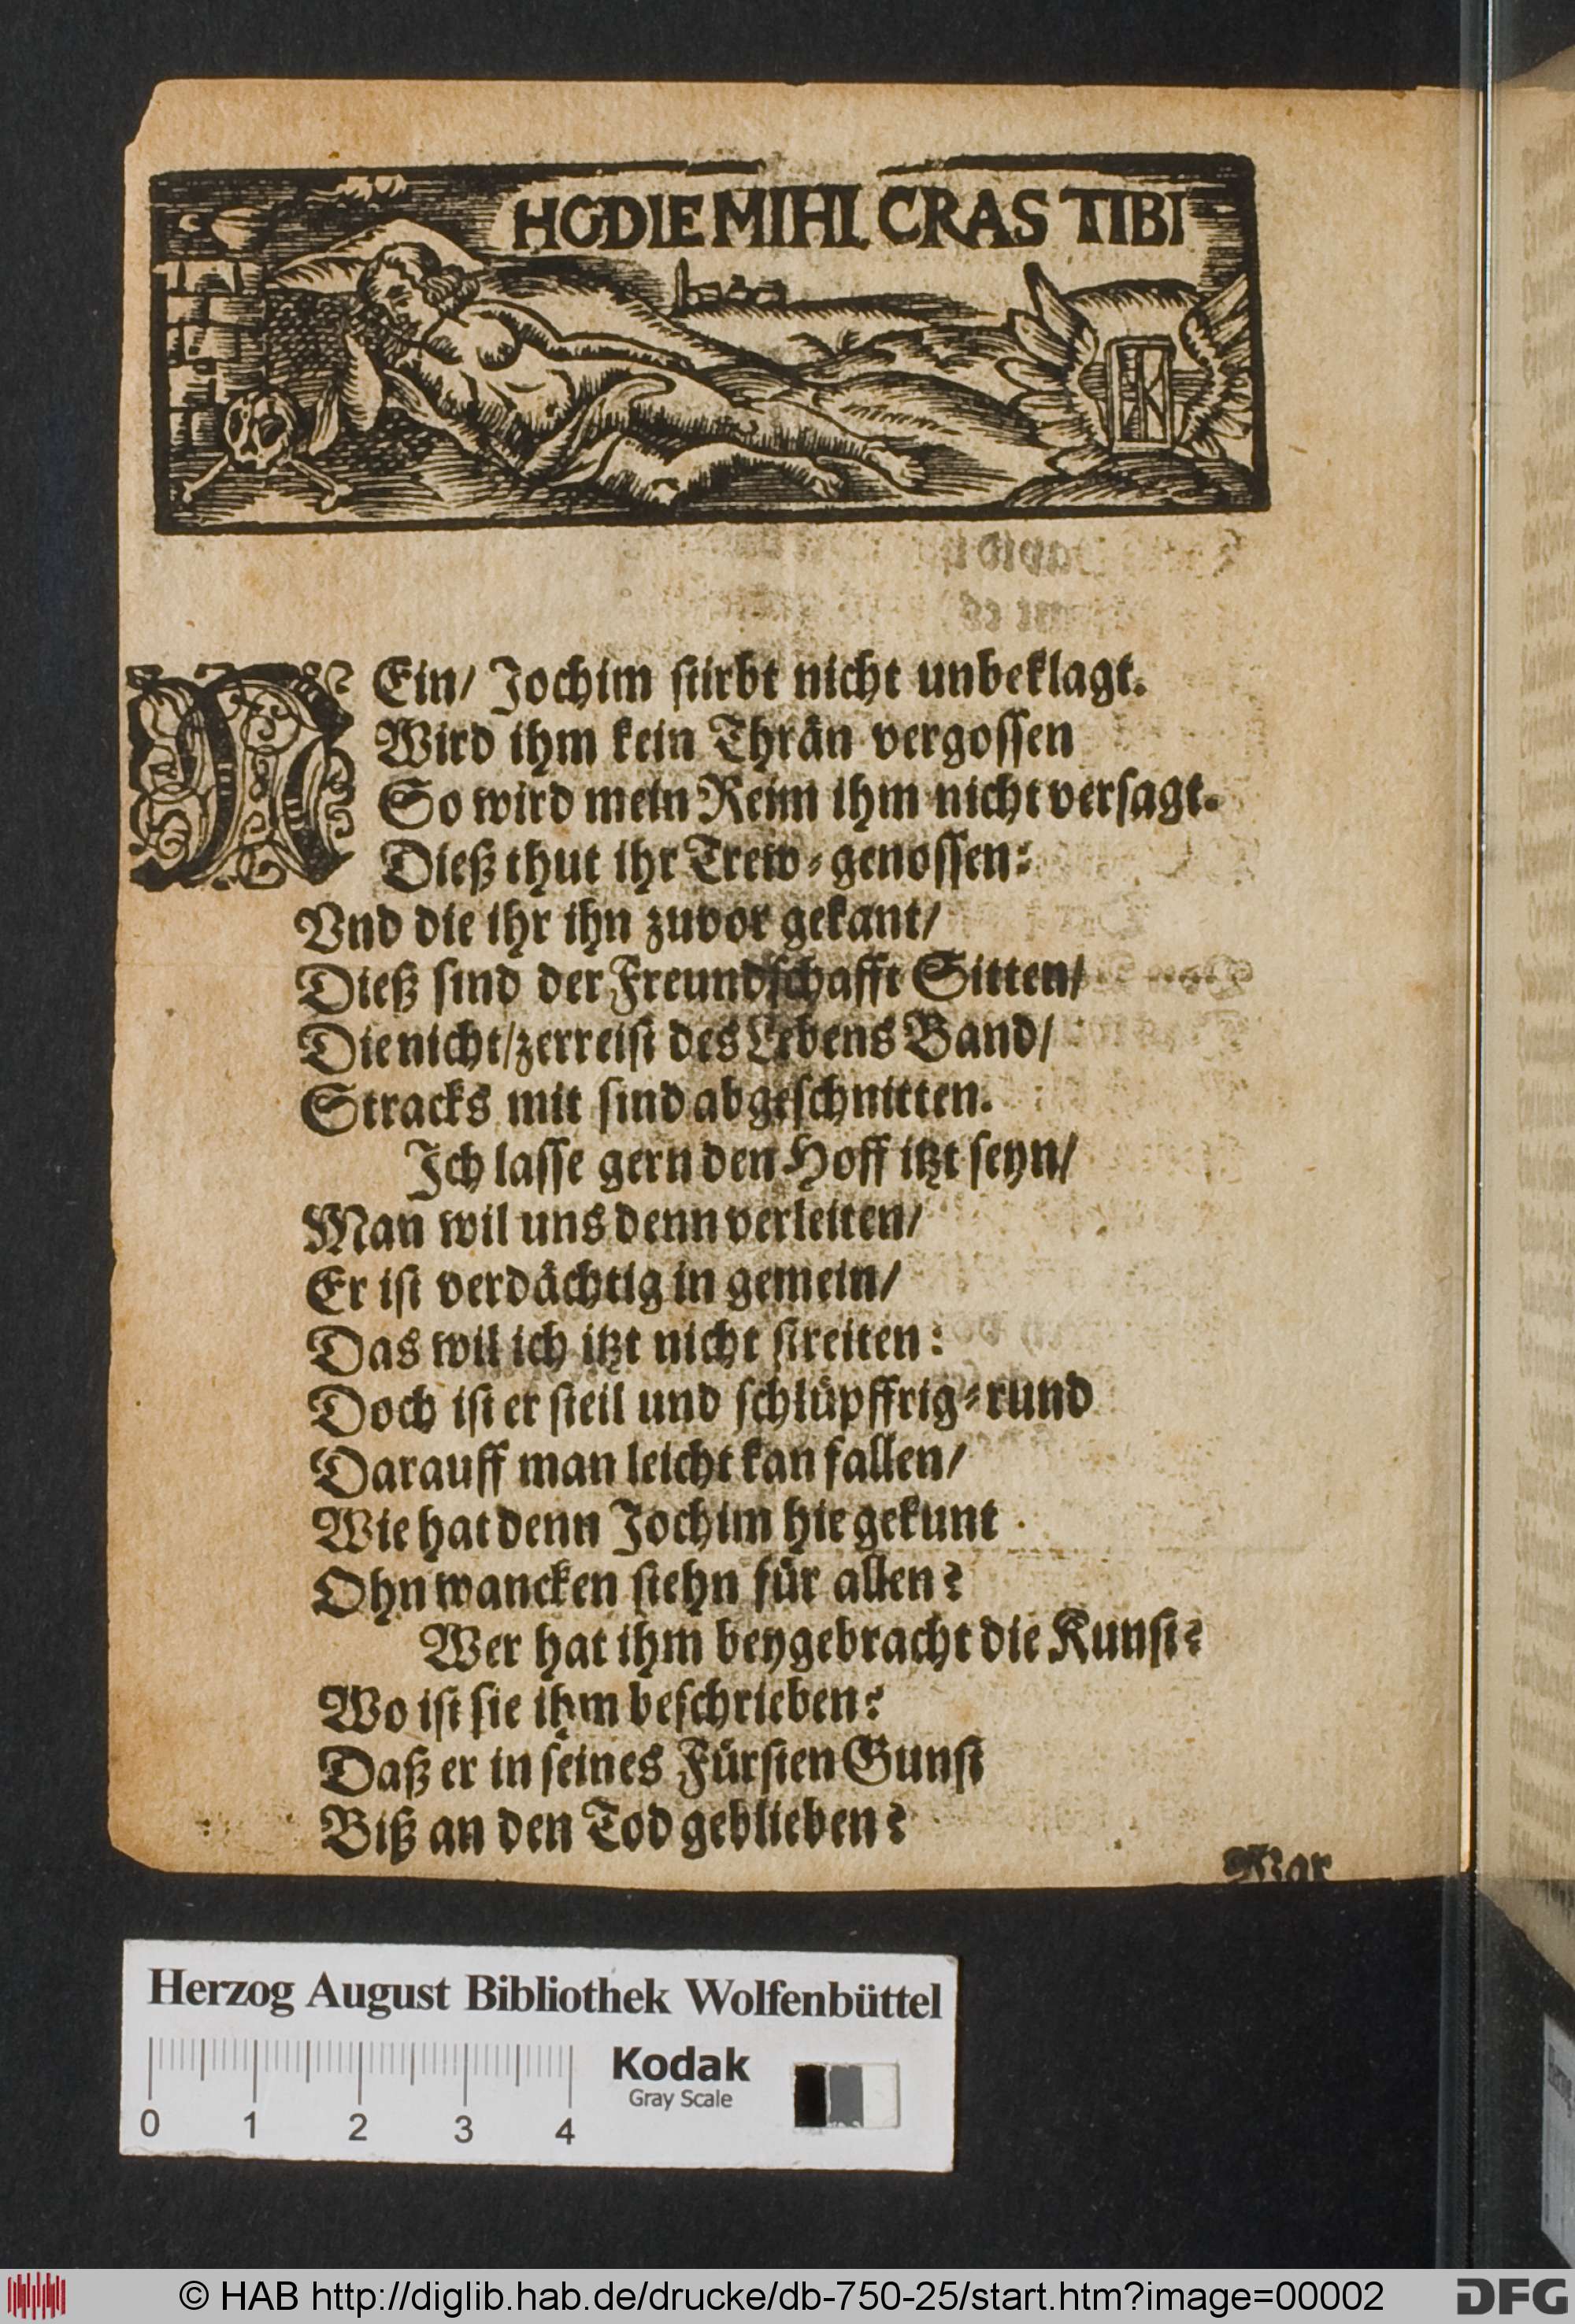 HODIE MIHI CRAS TIBI
NEin/ Jochim stirbt nicht unbeklagt.
Wird ihm kein Thrän vergossen
So wird mein Reim ihm nicht versagt.
Dieß thut ihr Trew-genossen:
Vnd die ihr ihn zuvor gekant/
Dieß sind der Freundschafft Sitten/
Die nicht/zerreist des Lebens Band/
Stracks mit sind abgeschnitten.
Ich lasse gern den Hoff itzt seyn/
Man wil uns denn verleiten/
Er ist verdächtig in gemein/
Das wil ich itzt nicht streiten:
Doch ist er steil und schlüpffrig-rund
Darauff man leicht kan fallen/
Wie hat denn Jochim hie gekunt
Ohn wancken stehn für allen?
Wer hat ihm beygebracht die Kunst?
Wo ist sie ihm beschrieben?
Daß er in seines Fürsten Gunst
Biß an den Tod geblieben?
War
Herzog August Bibliothek Wolfenbüttel
0 1 2 3 4
Kodak
Gray Scale
© HAB http://diglib.hab.de/drucke/db-750-25/start.htm?image=00002
DFG